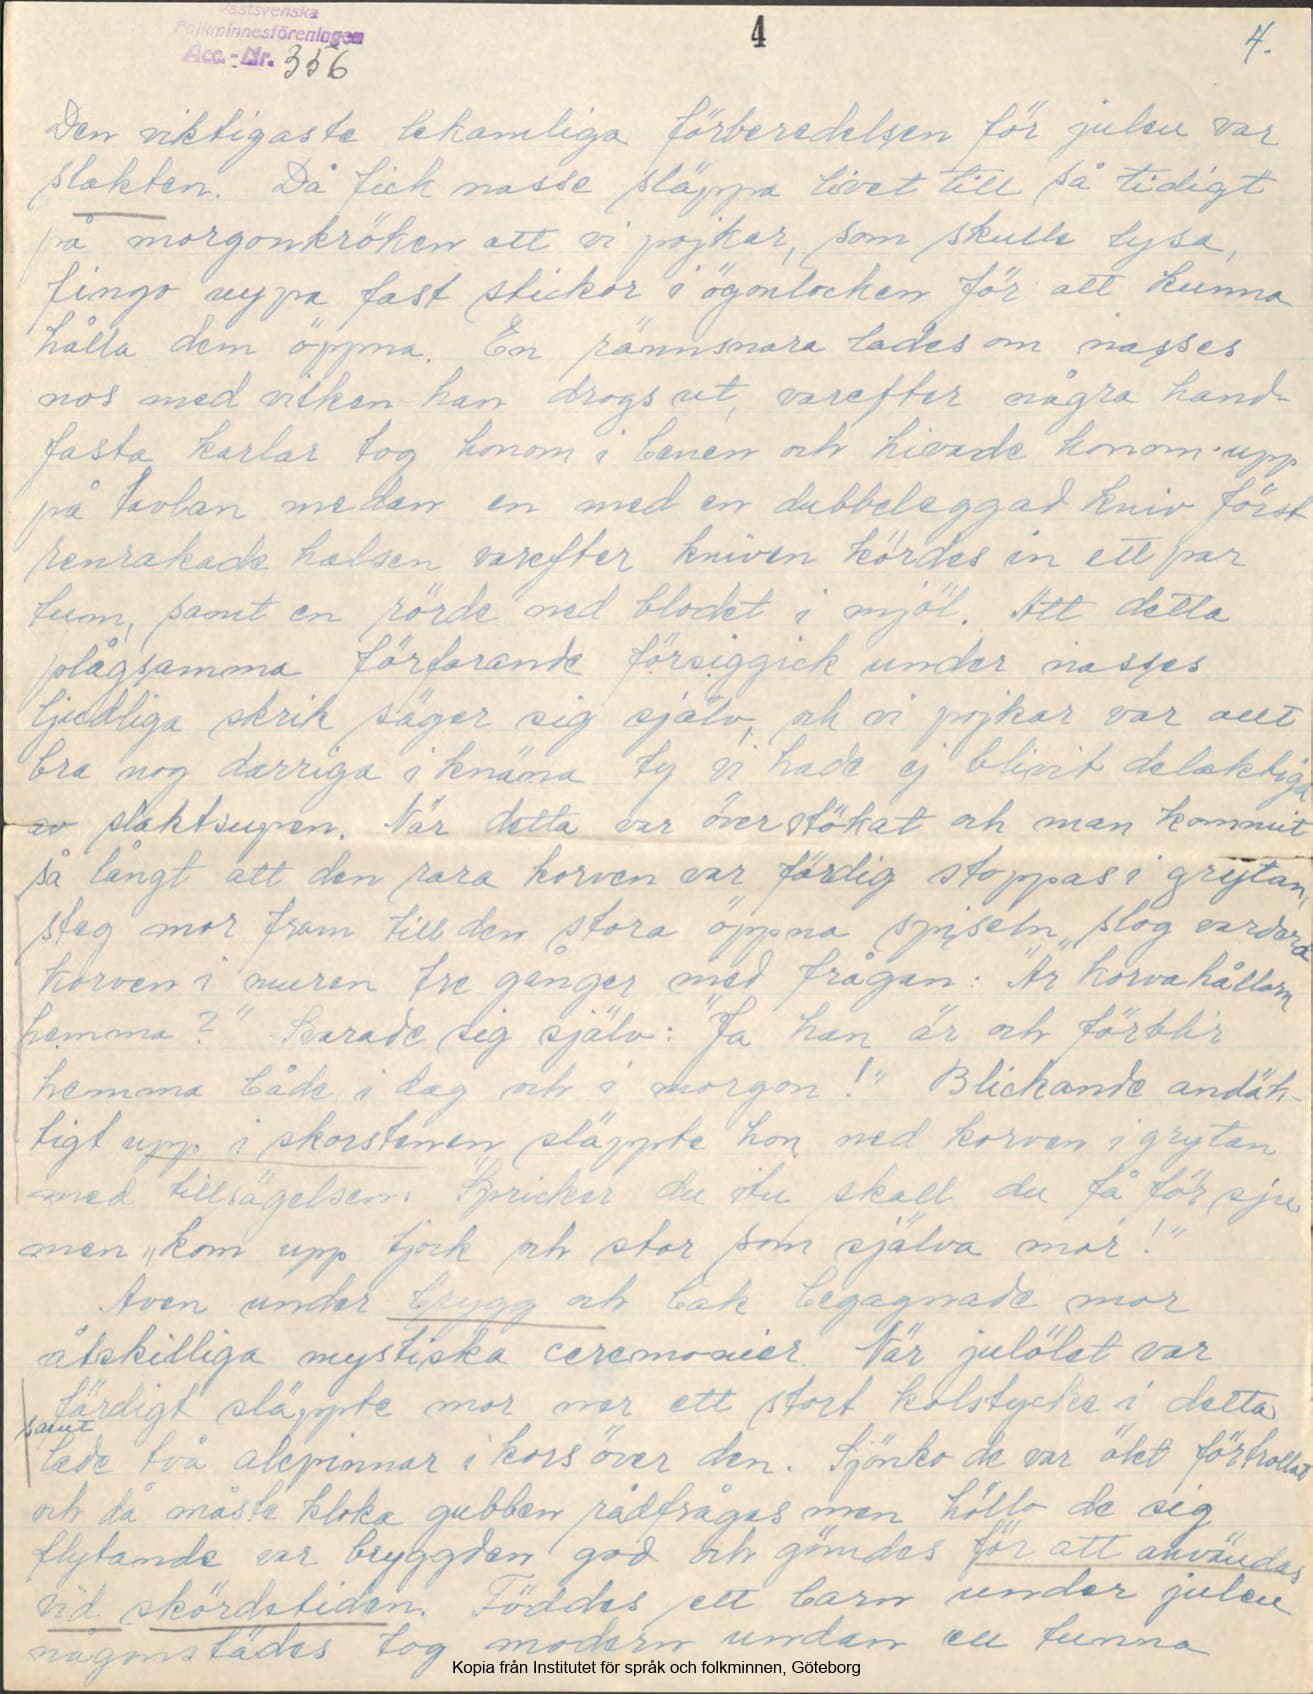 Västsvenska
Folkminnesföreningen
Acc.-Nr. 356
4
4.
Den viktigaste lekamliga förberedelsen för julen var
slakten. Då fick nasse släppa livet till så tidigt
på morgonkröken att vi pojkar, som skulle lysa,
fingo nypa fast stickor i ögonlocken för att kunna
hålla dem öppna. En rännsnara lades om nasses
nos med vilken han drogs ut, varefter några hand-
fasta karlar tog honom i benen och hivade honom upp
på tavlan medan en med en dubbeleggad kniv först
renrakade halsen varefter kniven kördes in ett par
tum, samt en rörde ned blodet i mjöl. Att detta
plågsamma förfarande försiggick under nasses
ljudliga skrik säger sig själv, och vi pojkar var allt
bra nog darriga i knäna ty vi hade ej blivit delaktiga
av slaktsupen. När detta var överstökat och man kommit
så långt att den rara korven var färdig stoppas i grytan,
steg mor fram till den stora öppna spiseln, slog vardera
korven i muren tre gånger med frågan: "Är korvahållarn
hemma?" Svarade sig själv: "Ja han är och förblir
hemma både i dag och i morgon!" Blickande andäk-
tigt upp i skorstenen släppte hon ned korven i grytan
med tillsägelsen: "Spricker du itu skall du få för sju
men kom upp tjock och stor som själva mor!"
Även under brygg och bak begagnade mor
åtskilliga mystiska ceremonier. När julölet var
färdigt släppte mor ner ett stort kolstycke i detta
samt
lade två alepinnar i kors över den. Sjönko de var ölet förtrollat
och då måste kloka gubben rådfrågas men höllo de sig
flytande var bryggden god och gömdes för att användas
vid skördetiden. Föddes ett barn under julen
någonstädes tog modern undan en tunna
Kopia från Institutet för språk och folkminnen, Göteborg